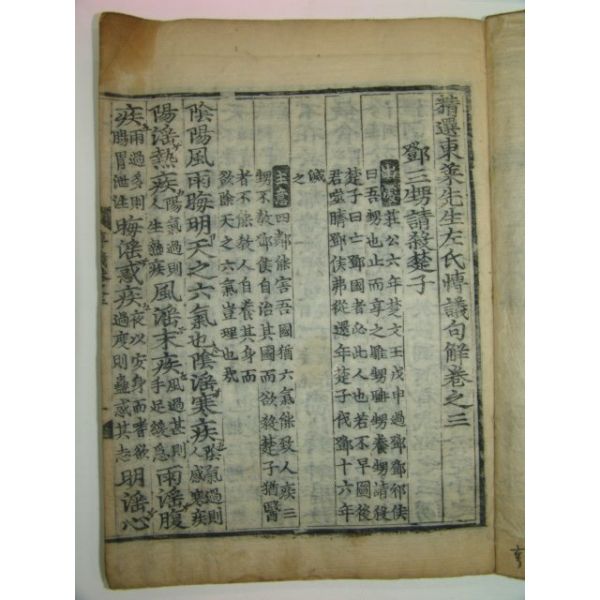 精選東萊先生左氏愽議句解卷之三
鄧三甥請殺楚子
出處
莊公六年楚文王伐申過鄧鄧祁侯
曰吾甥也止而享之騅甥聃甥養甥請殺
楚子曰亡鄧國者必此人也若不早圖後
君噬臍鄧侯弗從還年楚子伐鄧十六年
滅
之
主意
四鄰能害吾國猶六氣能致人疾三
甥不敎鄧侯自治其國而欲殺楚子猶醫
者不能敎人自養其身而
欲除天之六氣豈理也哉
陰陽風雨晦明天之六氣也陰淫寒疾陰氣過則人感寒疾
陽淫熱疾陽氣過則人生熱疾風淫末疾風過甚則手足緩急雨淫腹
疾雨過多則腸胃泄注晦淫惑疾夜以安身而耆欲過度則蠱惑其志明淫心